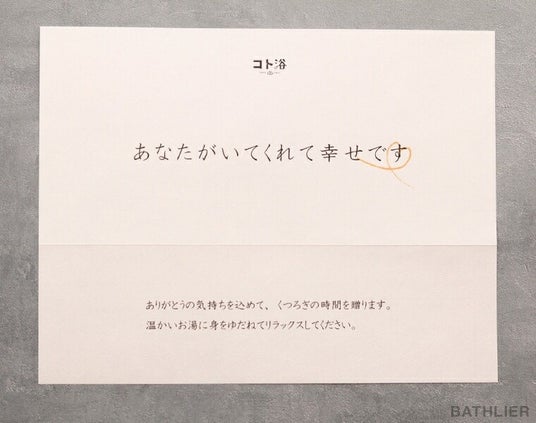 コト浴
あなたがいてくれて幸せです
ありがとうの気持ちを込めて、くつろぎの時間を贈ります。
温かいお湯に身をゆだねてリラックスしてください。
BATHLIER